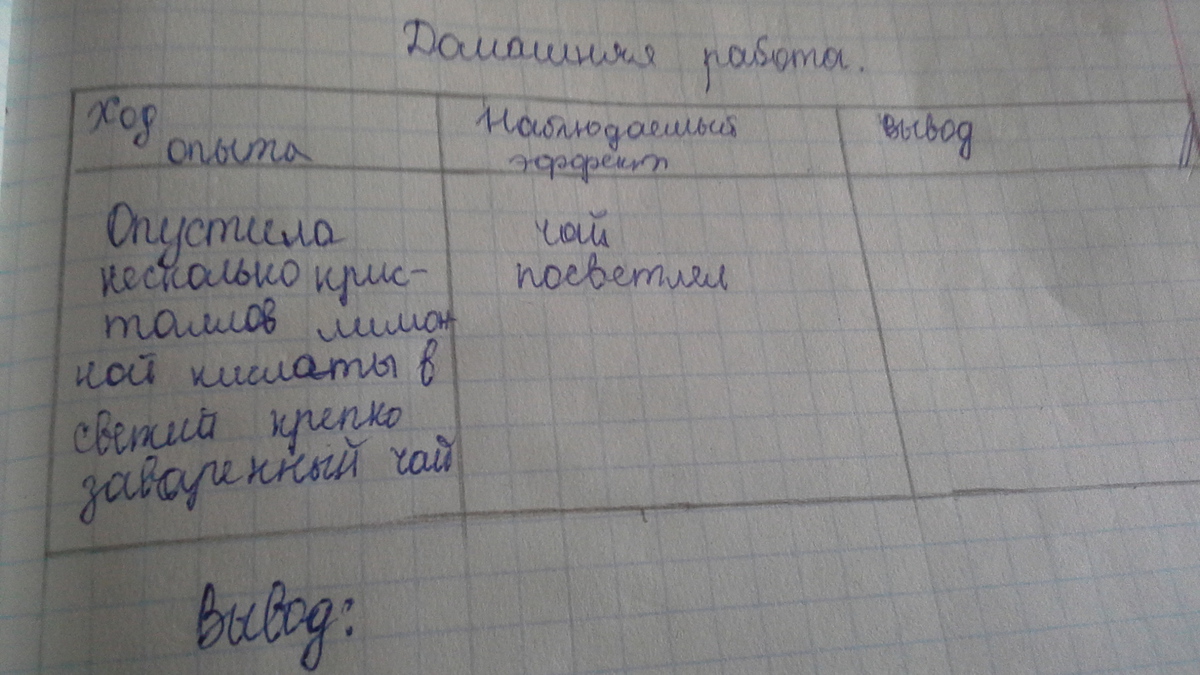 Домашняя работа.
Ход
опыта
Наблюдаемый
эффект
вывод
Опустила
несколько крис-
таллов лимон
ной кислаты в
свежий крепко
заваренный чай
чай
посветлел
Вывод: